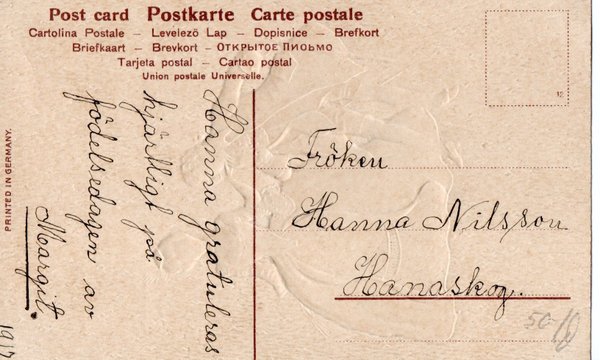 Post card Postkarte Carte postale
Cartolina Postale – Levelezö Lap – Dopisnice – Brefkort
Briefkaart – Brevkort – ОТКРЫТОЕ ПИСЬМО
Tarjeta postal – Cartao postal
Union postale Universelle.
12
PRINTED IN GERMANY.
Hanna gratuleras
hjärtligt på
födelsedagen av
Margit.
Fröken
Hanna Nilsson
Hanaskog.